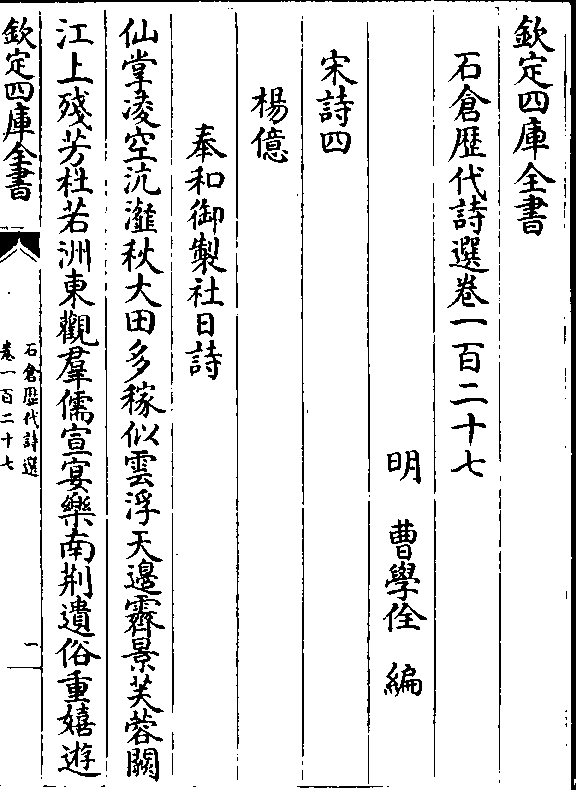 欽定四庫全書
石倉歴代詩選卷一百二十七
明 曹學佺 編
宋詩四
楊億
奉和御製社日詩
仙掌凌空沆瀣秋大田多稼似雲浮天邊霽景芙蓉闕
江上殘芳杜若洲東觀羣儒宣宴樂南荆遺俗重嬉遊
欽定四庫全書
石倉歴代詩選
卷一百二十七
一